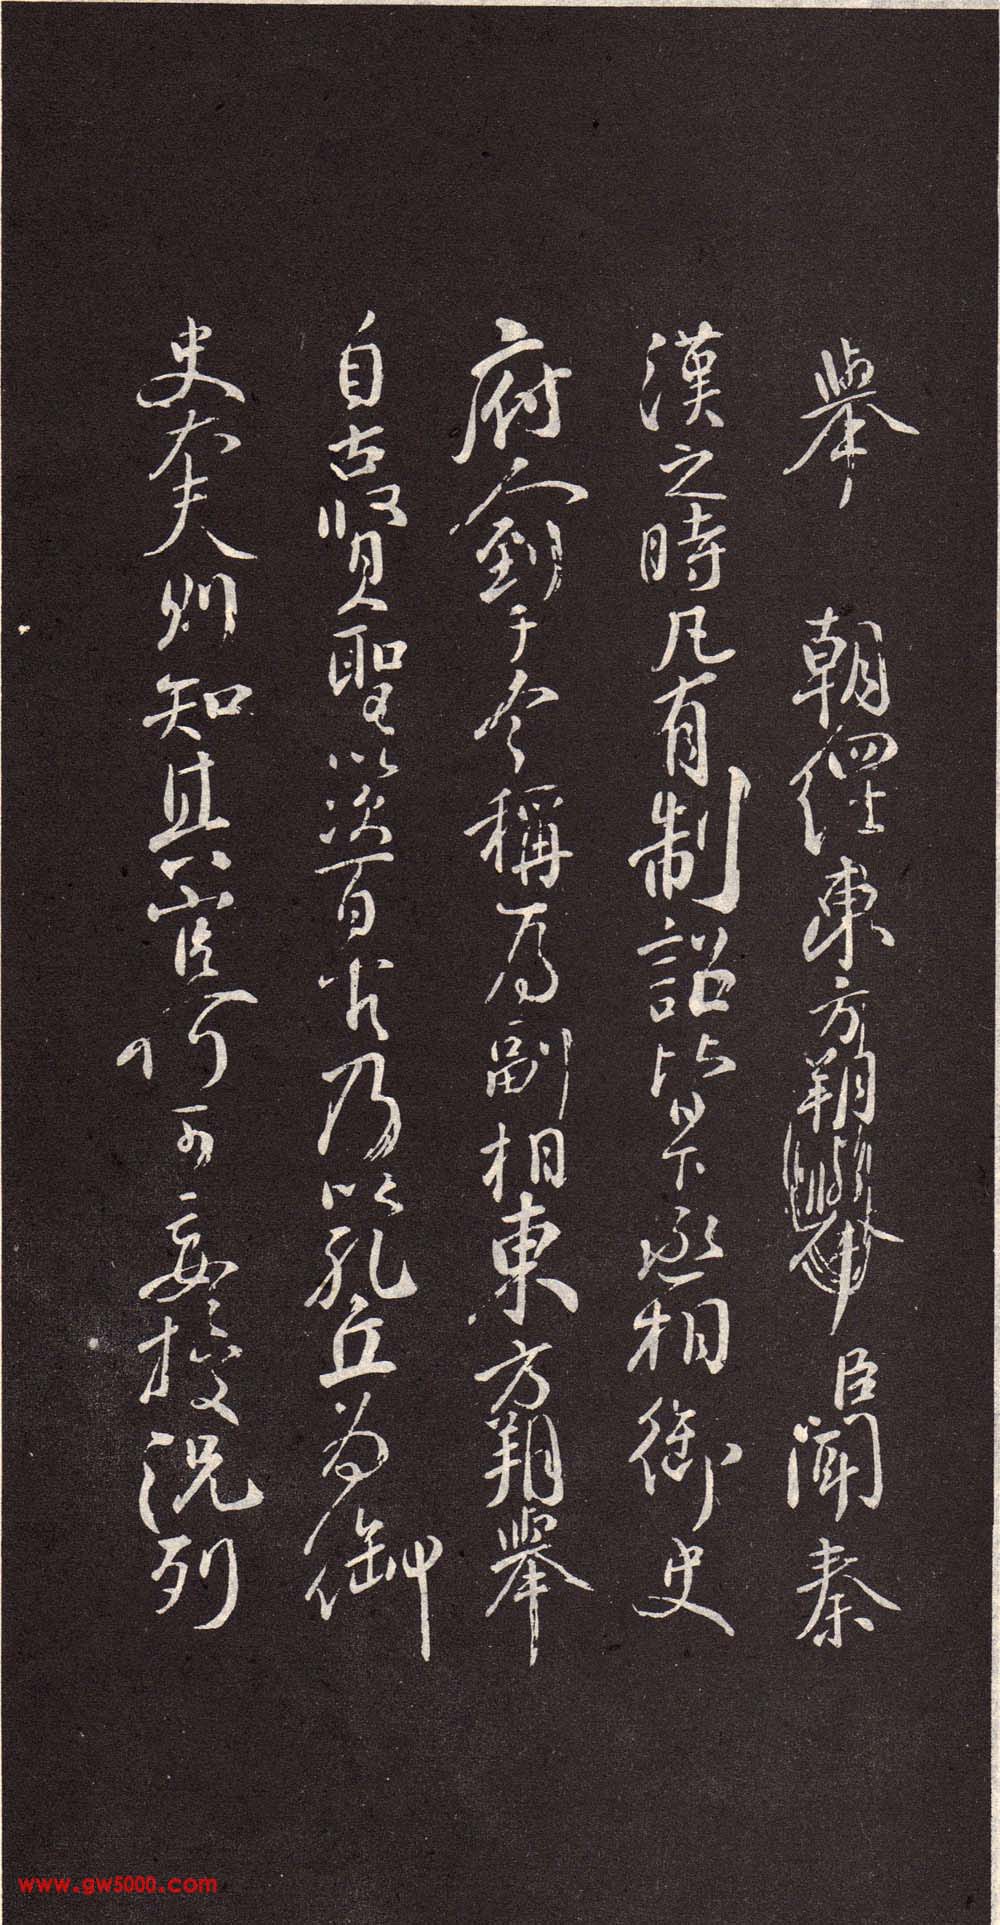 舉　朝經東方朔舉臣聞秦
漢之時凡有制詔皆下丞相御史
府人到于今稱為副相東方朔舉
自古賢聖以次百官乃以孔丘為御
史大夫則知其官何可妄授況列
www.gw5000.com